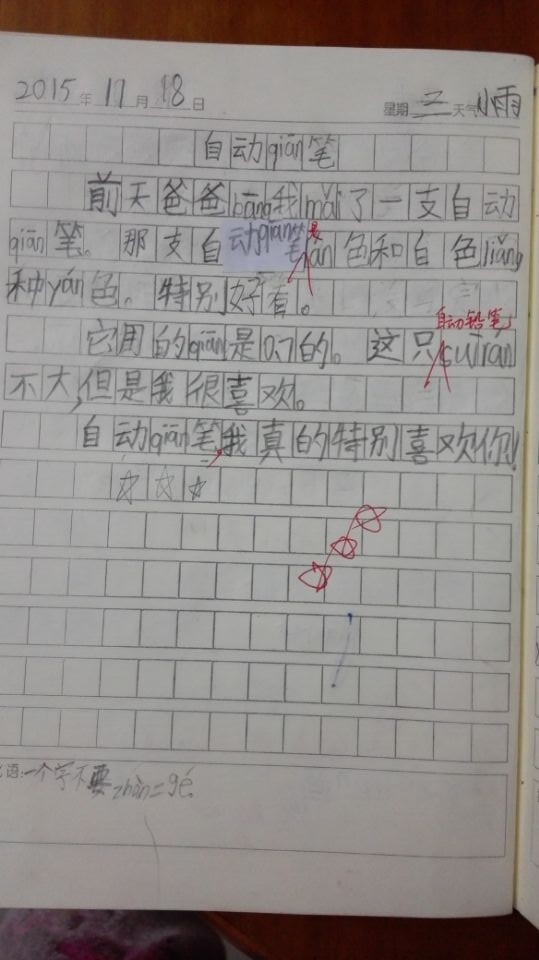 2015年11月18日 星期三 天气小雨
自动qiān笔
前天爸爸bāng我mǎi了一支自动
qiān笔。那支自动qiān笔是lán色和白色liǎng
种yán色。特别好看。
自动铅笔
它用的qiān是0.7的。这只suīrán
不大,但是我很喜欢。
自动qiān笔我真的特别喜欢你!
☆☆☆
语:一个字不要zhàn二gé